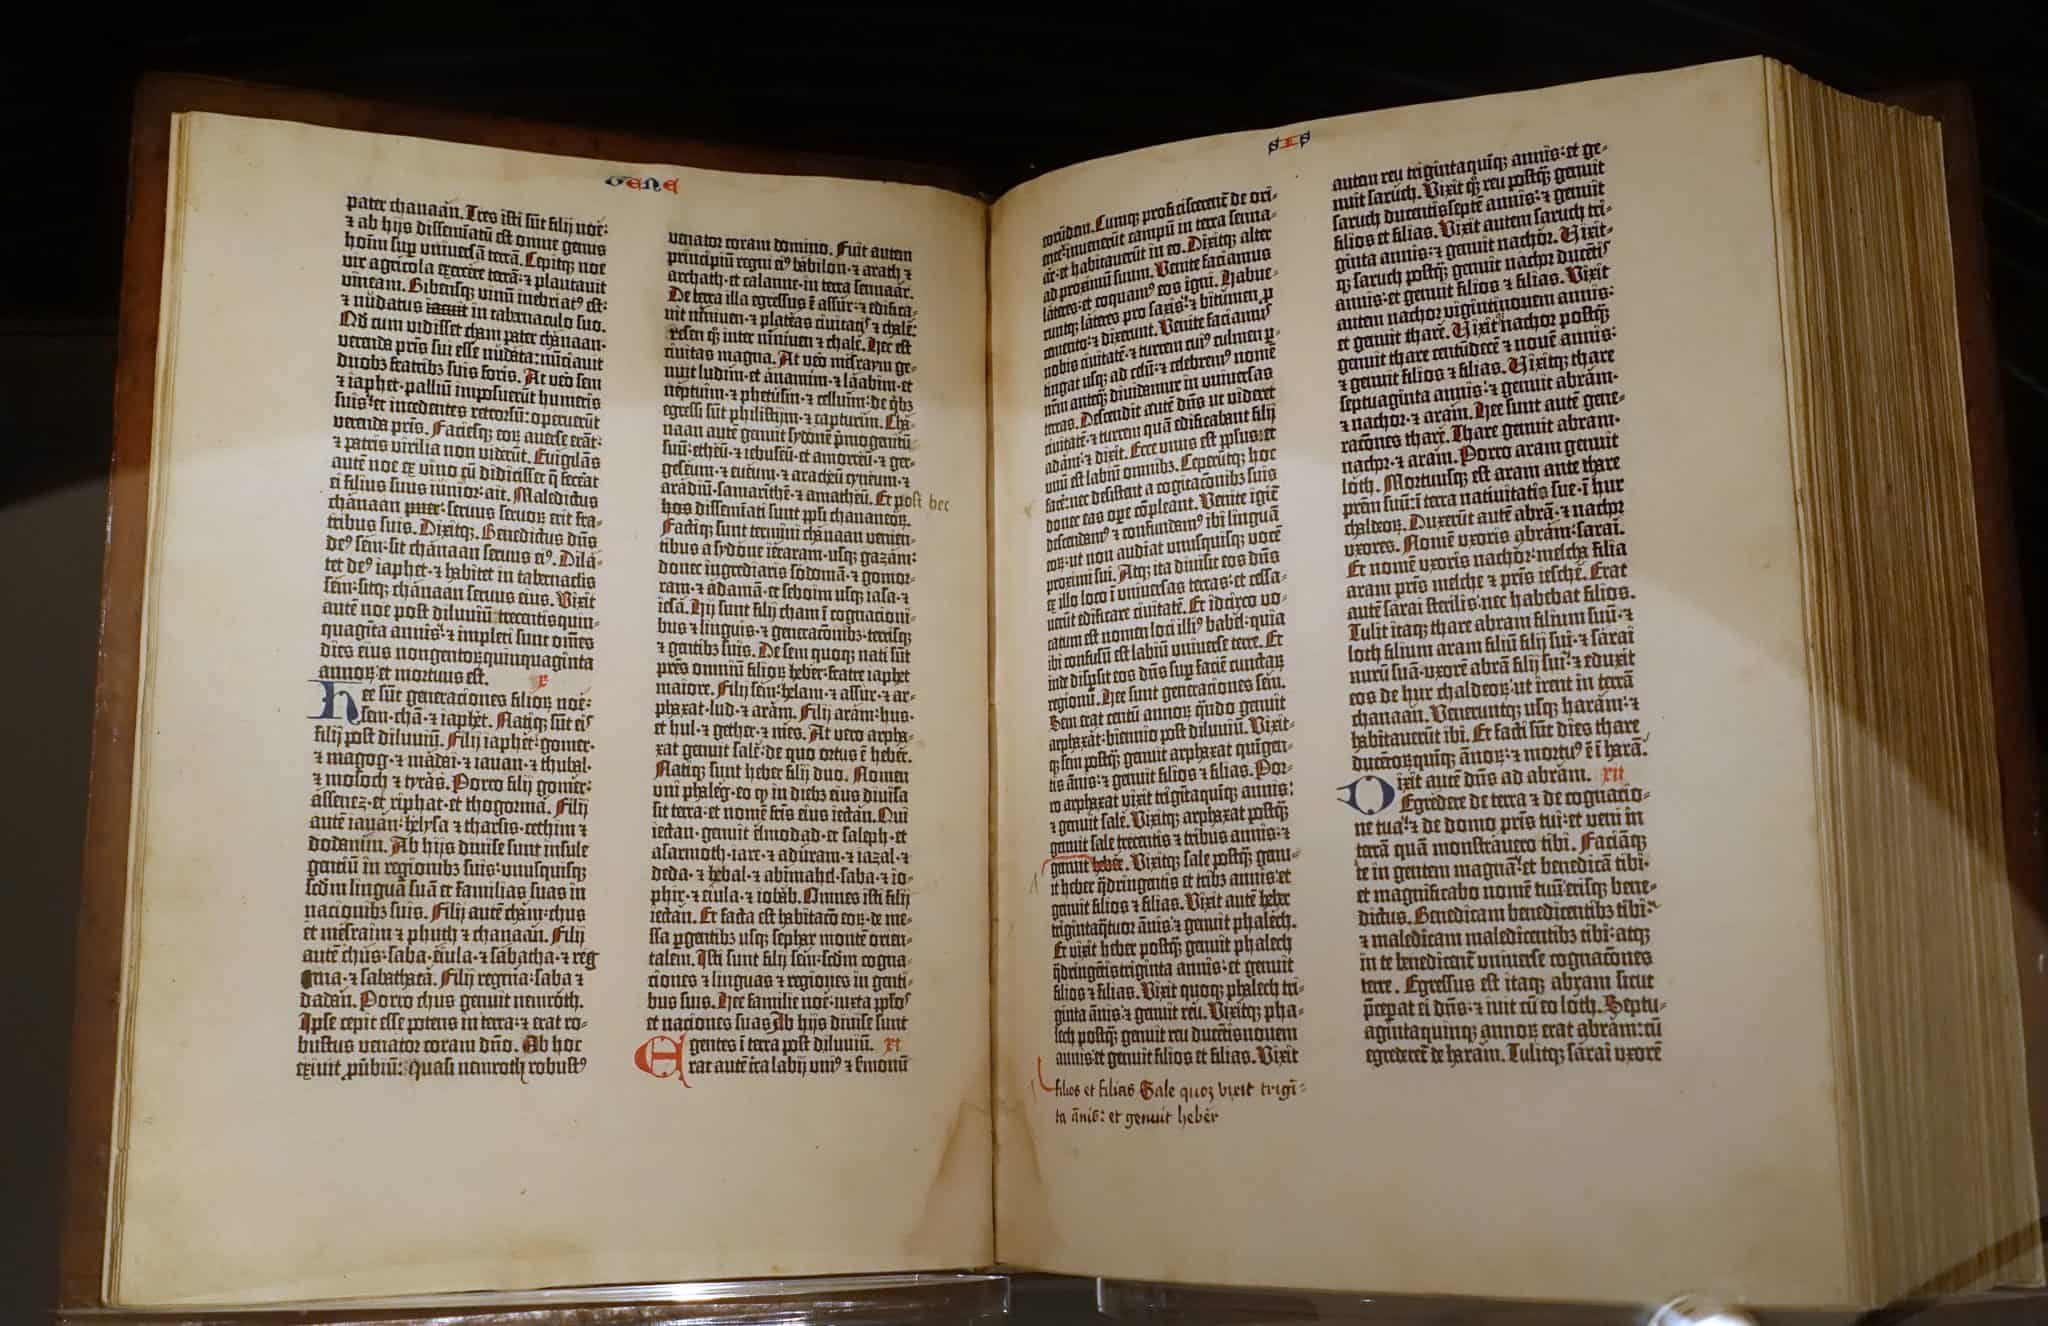 GENE
pater chanaan. Tres isti sūt filij noe:
⁊ ab hijs disseminatū est omne genus
hoīm sup vniuersā terrā. Cepitqꝫ noe
vir agricola exercere terrā: ⁊ plantauit
vineam. Bibensqꝫ vinū inebriatꝰ est:
⁊ nudatus iacuit in tabernaculo suo.
Qd̄ cum vidisset cham pater chanaan·
verenda pr̄is sui esse nudata: nūciauit
duobꝫ fratribꝫ suis foris. At vēo sem
⁊ iaphet· palliū imposuerūt humeris
suis: et incedentes retrorsū: operuerūt
verenda pr̄is. Faciesqꝫ eoꝝ auerse erāt:
⁊ patris virilia non viderūt. Euigilās
autē noe ex vino cū didicisset q̄ fecerat
ei filius suus iunior: ait. Maledictus
chanaan puer: seruus seruoꝝ erit fra-
tribus suis. Dixitqꝫ. Benedictus dn̄s
deꝰ sem: sit chanaan seruus eiꝰ. Dila-
tet deꝰ iaphet· ⁊ habitet in tabernaclis
sem: sitqꝫ chanaan seruus eius. Vixit
autē noe post diluuiū trecentisquin-
quagīta annis: ⁊ impleti sunt om̄es
dies eius nongentoꝝquinquaginta
annoꝝ: et mortuus est. x
Hee sūt generaciones filioꝝ noe:
sem· chā· ⁊ iaphet. Natiqꝫ sūt eiſ
filij post diluuiū. Filij iaphet: gomer·
⁊ magog· ⁊ madai· ⁊ iauan· ⁊ thubal·
⁊ mosoch ⁊ tyras. Porro filij gomer:
assenez· et riphat· et thogorma. Filij
autē iauan: helysa ⁊ tharsis· cethim ⁊
dodanim. Ab hijs diuise sunt insule
gentiū in regionibꝫ suis: vnusquisqꝫ
scdm linguā suā et familias suas in
nacionibꝫ suis. Filij autē cham: chus
et mesraim ⁊ phuth ⁊ chanaan. Filij
autē chus: saba· euila· ⁊ sabatha· ⁊ reg
ma· ⁊ sabathaca. Filij regma: saba ⁊
dadan. Porro chus genuit nemroth.
Ipse cepit esse potens in terra: ⁊ erat ro-
bustus venator coram dn̄o. Ab hoc
exiuit ꝓūbiū: quasi nemroth robustꝰ
venator coram domino. Fuit autem
principiū regni eiꝰ babilon· ⁊ arath ⁊
archath· et calanne· in terra sennaar.
De terra illa egressus ē assur: ⁊ edifica-
uit niniuen· ⁊ plateas ciuitatis ⁊ chale·
resen qꝫ inter niniuen ⁊ chale. Hec est
ciuitas magna. At vēo mesraym ge-
nuit ludim· et anamim· ⁊ laabim· et
neptuim· ⁊ phetusim· ⁊ cesluim: de qͥbꝫ
egressi sūt philistijm· ⁊ capturim. Cha-
naan autē genuit sydonē pͥmogenitū
suū: etheū· ⁊ iebuseū· et amorreū· ⁊ ger-
geseum· ⁊ eueum· ⁊ aracheū cyneum· ⁊
aradiū· samaritē· ⁊ amatheū. Et post hec
hos disseminati sunt ppl̄i chananeoꝝ.
Factiqꝫ sunt termini chanaan venien-
tibus a sydone ieraram· usqꝫ gazam:
donec ingrediaris sodomā· ⁊ gomor-
ram· ⁊ adamā· et seboim usqꝫ lasa· ⁊
iesa. Hij sunt filij cham ī cognacioni-
bus ⁊ linguis· ⁊ generacōnibꝫ· terrisqꝫ
⁊ gentibꝫ suis. De sem quoqꝫ nati sūt
pr̄es omniū filioꝝ heber· fratre iaphet
maiore. Filij sem: helam· ⁊ assur· ⁊ ar-
phaxat· lud· ⁊ aram. Filij aram: hus·
et hul· ⁊ gether· ⁊ mes. At vero arpha-
xat genuit sale: de quo ortus ē heber.
Natiqꝫ sunt heber filij duo. Nomen
vni phaleg· eo qꝙ in diebꝫ eius diuisa
sit terra: et nomē fr̄is eius iectan. Qui
iectan· genuit elmodad· et saleph· et
asarmoth· iare· ⁊ aduram· ⁊ iazal· ⁊
decla· ⁊ hebal· ⁊ abimahel· saba· ⁊ io-
phir· ⁊ euila· ⁊ iobab. Omnes isti filij
iectan. Et facta est habitacō eoꝝ· de me-
ssa ꝑgentibꝫ usqꝫ sephar montē orien-
talem. Isti sunt filij sem: scdm cogna-
ciones ⁊ linguas ⁊ regiones in genti-
bus suis. Hee familie noe: iuxta ppl̄os
et naciones suas. Ab hijs diuise sunt
gentes ī terra post diluuiū. xi
Erat autē t̄ra labij vniꝰ ⁊ s̄monū
SIS
eorūdem. Cumqꝫ proficiscerent̄ de ori-
ente: inuenerūt campū in terra senna-
ar: et habitauerūt in eo. Dixitqꝫ alter
ad proximū suum. Venite faciamus
lateres: et coquamꝰ eos igni. Habue-
runtqꝫ lateres pro saxis: ⁊ bitumen ꝑ
cemento: ⁊ dixerunt. Venite faciamꝰ
nobis ciuitatē: ⁊ turrem cuiꝰ culmen ꝑ-
tingat usqꝫ ad celū: ⁊ celebremꝰ nomē
nr̄m anteqꝫ diuidamur in vniuersas
terras. Descendit autē dn̄s ut videret
ciuitatē· ⁊ turrem quā edificabant filij
adam: ⁊ dixit. Ecce unus est ppl̄us: et
vnū est labiū omnibꝫ. Ceperūtqꝫ hoc
facē: nec desistent a cogitacōnibꝫ suis
donec eas oꝑe cōpleant. Venite igit̄
descendamꝰ ⁊ confundamꝰ ibi linguā
eoꝝ: ut non audiat vnusquisqꝫ vocē
proximi sui. Atqꝫ ita diuisit eos dn̄s
ex illo loco ī vniuersas terras: et cessa-
uerūt edificare ciuitatē. Et idcirco vo-
catum est nomen loci illiꝰ babel: quia
ibi confusū est labiū vniuerse terre. Et
inde dispsit eos dn̄s suꝑ faciē cunctaꝝ
regionū. Hee sunt generaciones sem.
Sem erat centū annoꝝ qn̄do genuit
arphaxat· biennio post diluuiū. Vixit-
qꝫ sem postqꝫ genuit arphaxat quīgen-
tis ānis: ⁊ genuit filios ⁊ filias. Por-
ro arphaxat vixit trigītaquīqꝫ annis:
⁊ genuit sale. Vixitqꝫ arphaxat postqꝫ
genuit sale trecentis ⁊ tribus annis: ⁊
genuit heber. Vixitqꝫ sale postqꝫ genu-
it heber qͣdringentis et tribꝫ annis: et
genuit filios ⁊ filias. Vixit autē heber
trigintaqͣtuor ānis: ⁊ genuit phalech.
Et vixit heber postqꝫ genuit phalech
qͣdringētistriginta annis: et genuit
filios ⁊ filias. Vixit quoqꝫ phalech tri-
ginta ānis: ⁊ genuit reu. Vixitqꝫ pha-
lech postqꝫ genuit reu ducētisnouem
annis: et genuit filios et filias. Vixit
filios et filias Sale quoqꝫ vixit trigī-
ta ānis: et genuit heber
autem reu trigintaquīqꝫ annis: et ge-
nuit saruch. Vixit qꝫ reu postqꝫ genuit
saruch ducentisseptē annis: ⁊ genuit
filios et filias. Vixit autem saruch tri-
ginta annis: ⁊ genuit nachor. Vixit-
qꝫ saruch postqꝫ genuit nachor ducētis
annis: et genuit filios ⁊ filias. Vixit
autem nachor vigintinouem annis:
et genuit thare. Vixitqꝫ nachor postqꝫ
genuit thare centūdecē ⁊ nouē annis:
⁊ genuit filios ⁊ filias. Vixitqꝫ thare
septuaginta annis: ⁊ genuit abram·
⁊ nachor· ⁊ aram. Hee sunt autē gene-
racōnes thare. Thare genuit abram·
nachor· ⁊ aram. Porro aram genuit
loth. Mortuusqꝫ est aram ante thare
prēm suū: ī terra natiuitatis sue· ī hur
chaldeoꝝ. Duxerūt autē abrā· ⁊ nachor
vxores. Nomē vxoris abram: sarai.
Et nomē vxoris nachor: melcha filia
aram pr̄is melche ⁊ pr̄is iesche. Erat
autē sarai sterilis: nec habebat filios.
Tulit itaqꝫ thare abram filium suū: ⁊
loth filium aram filiū filij sui· ⁊ sarai
nurū suā· vxorē abrā filij sui: ⁊ eduxit
eos de hur chaldeoꝝ: ut irent in terrā
chanaan. Veneruntqꝫ usqꝫ haram: ⁊
habitauerūt ibi. Et facti sūt dies thare
ducētoꝝquīqꝫ ānoꝝ: ⁊ mortuꝰ ē ī harā.
Dixit autē dn̄s ad abram. xii
Egredere de terra ⁊ de cognacio-
ne tua: ⁊ de domo pr̄is tui: et veni in
terrā quā monstrauero tibi. Faciāqꝫ
te in gentem magnā: et benedicā tibi·
et magnificabo nomē tuū: erisqꝫ bene-
dictus. Benedicam benedicentibꝫ tibi:
⁊ maledicam maledicentibꝫ tibi: atqꝫ
in te benedicent̄ vniuerse cognacōnes
terre. Egressus est itaqꝫ abram sicut
p̄ceꝑat ei dn̄s: ⁊ iuit cū eo loth. Septu-
agintaquinqꝫ annoꝝ erat abram: cū
egrederet̄ de haram. Tulitqꝫ sarai vxorē